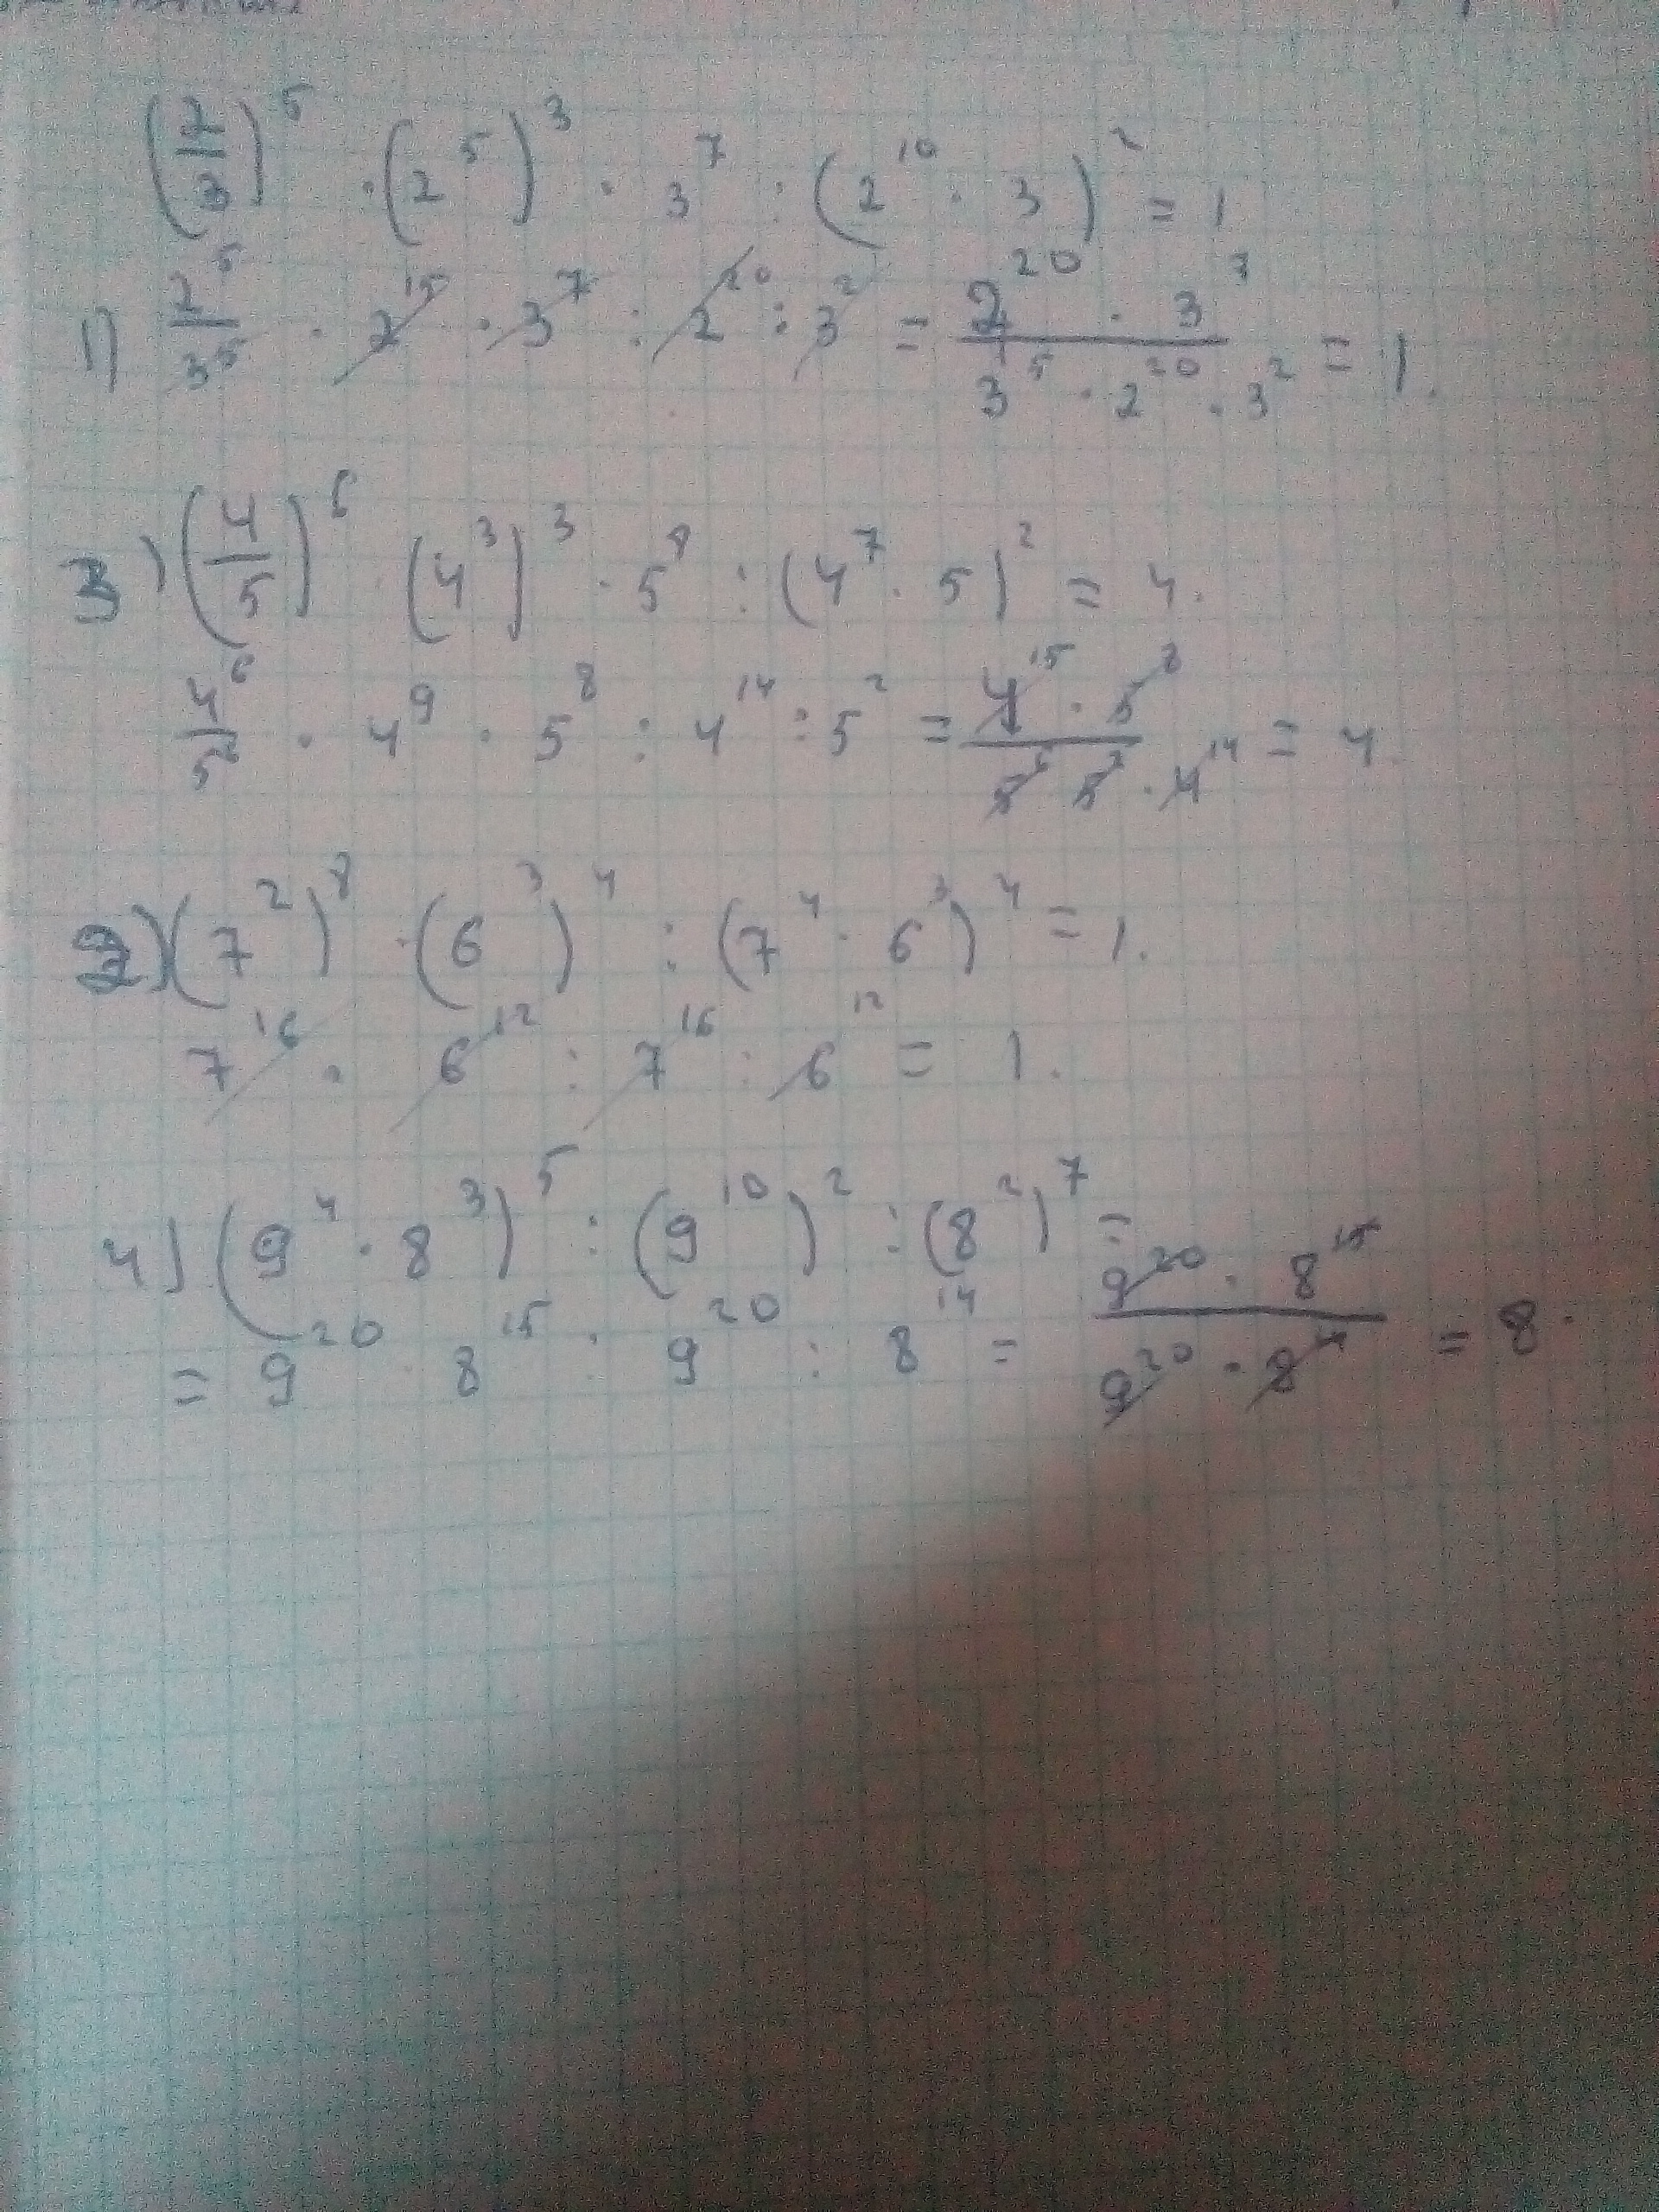 (2/3)⁵ · (2⁵)³ · 3⁷ : (2¹⁰ · 3)² = 1
1) 2⁵/3⁵ · 2¹⁵ · 3⁷ : 2²⁰ : 3² = (2²⁰ · 3⁷)/(3⁵ · 2²⁰ · 3²) = 1.
3) (4/5)⁶ · (4³)³ · 5⁸ : (4⁷ · 5)² = 4.
4⁶/5⁶ · 4⁹ · 5⁸ : 4¹⁴ : 5² = (4¹⁵ · 5⁸)/(5⁶ 5² · 4¹⁴) = 4.
2) (7²)⁸ · (6³)⁴ : (7⁴ · 6³)⁴ = 1.
7¹⁶ · 6¹² : 7¹⁶ : 6¹² = 1.
4) (9⁴ · 8³)⁵ : (9¹⁰)² : (8²)⁷ =
= 9²⁰ · 8¹⁵ : 9²⁰ : 8¹⁴ = (9²⁰ · 8¹⁵)/(9²⁰ · 8¹⁴) = 8.